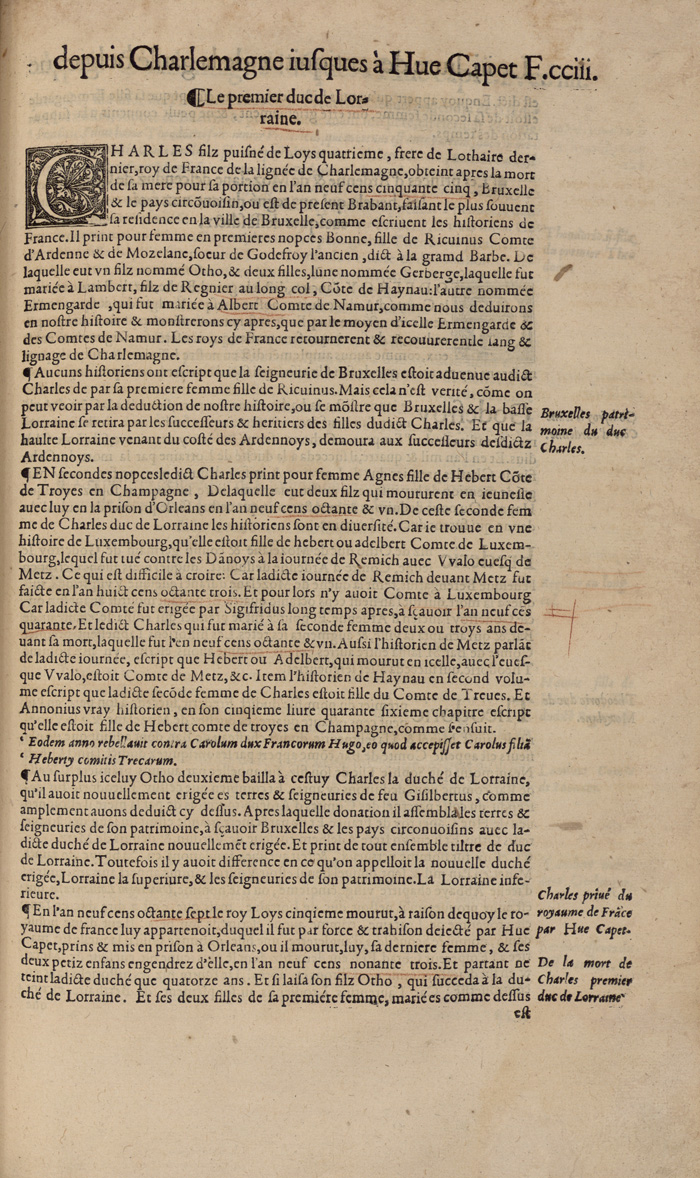 depuis Charlemagne iuſques à Hue Capet F.cciii.
¶Le premier duc de Lor-
raine.
CHARLES filz puiſné de Loys quatrieme, frere de Lothaire der-
nier, roy de France de la lignée de Charlemagne, obteint apres la mort
de ſa mere pour ſa portion en l'an neuf cens cinquante cinq, Bruxelle
& le pays circõuoiſin, ou eſt de preſent Brabant, faiſant le plus ſouuent
ſa reſidence en la ville de Bruxelle, comme eſcriuent les hiſtoriens de
France. Il print pour femme en premieres nopces Bonne, fille de Ricuinus Comte
d'Ardenne & de Mozelane, ſoeur de Godefroy l'ancien, dict à la gramd Barbe. De
laquelle eut vn filz nommé Otho, & deux filles, lune nommée Gerberge, laquelle fut
mariée à Lambert, filz de Regnier au long col, Cõte de Haynau: l'autre nommée
Ermengarde, qui fut mariée à Albert Comte de Namur, comme nous deduirons
en noſtre hiſtoire & monſtrerons cy apres, que par le moyen d'icelle Ermengarde &
des Comtes de Namur. Les roys de France retournerent & recouurerent le ſang &
lignage de Charlemagne.
¶Aucuns hiſtoriens ont eſcript que la ſeigneurie de Bruxelles eſtoit aduenue audict
Charles de par ſa premiere femme fille de Ricuinus. Mais cela n'eſt verité, cõme on
peut veoir par la deduction de noſtre hiſtoire, ou ſe mõſtre que Bruxelles & la baſſe
Lorraine ſe retira par les ſucceſſeurs & heritiers des filles dudict Charles. Et que la
haulte Lorraine venant du coſté des Ardennoys, demoura aux ſucceſſeurs deſdictz
Ardennoys.
Bruxelles patri-
moine du duc
Charles.
¶EN ſecondes nopces ledict Charles print pour femme Agnes fille de Hebert Cõte
de Troyes en Champagne, Delaquelle eut deux filz qui moururent en ieuneſſe
auec luy en la priſon d'Orleans en l'an neuf cens octante & vn. De ceſte ſeconde fem
me de Charles duc de Lorraine les hiſtoriens ſont en diuerſité. Car ie trouue en vne
hiſtoire de Luxembourg, qu'elle eſtoit fille de hebert ou adelbert Comte de Luxem-
bourg, lequel fut tué contre les Dãnoys à la iournée de Remich auec Vvalo eueſq de
Metz. Ce qui eſt difficile à croire: Car ladicte iournée de Remich deuant Metz fut
faicte en l'an huict cens octante trois. Et pour lors n'y auoit Comte à Luxembourg
Car ladicte Comté fut erigée par Sigifridus long temps apres, à ſçauoir l'an neuf cẽs
quarante. Et ledict Charles qui fut marié à ſa ſeconde femme deux ou troys ans de-
uant ſa mort, laquelle fut l'en neuf cens octante & vn. Auſſi l'hiſtorien de Metz parlãt
de ladicte iournée, eſcript que Hebert ou Adelbert, qui mourut en icelle, auec l'eueſ-
que Vvalo, eſtoit Comte de Metz, &c. Item l'hiſtorien de Haynau en ſecond volu-
me eſcript que ladicte ſecõde femme de Charles eſtoit fille du Comte de Treues. Et
Annonius vray hiſtorien, en ſon cinqieme liure quarante ſixieme chapitre eſcript
qu'elle eſtoit fille de Hebert comte de troyes en Champagne, comme s'enſuit.
‘ Eodem anno rebellauit contra Carolum dux Francorum Hugo, eo quod accepiſſet Carolus filiã
‘ Heberty comitis Trecarum.
¶Au ſurplus iceluy Otho deuxieme bailla à ceſtuy Charles la duché de Lorraine,
qu'il auoit nouuellement erigée es terres & ſeigneuries de feu Giſilbertus, comme
amplement auons deduict cy deſſus. Apres laquelle donation il aſſembla les terres &
ſeigneuries de ſon patrimoine, à ſçauoir Bruxelles & les pays circonuoiſins auec la-
dicte duché de Lorraine nouuellemẽt erigée. Et print de tout enſemble tiltre de duc
de Lorraine. Toutefois il y auoit difference en ce qu'on appelloit la nouuelle duché
erigée, Lorraine la ſuperiure, & les ſeigneuries de ſon patrimoine. La Lorraine infe-
rieure.
¶En l'an neuf cens octante ſept le roy Loys cinqieme mourut, à raiſon dequoy le ro-
yaume de france luy appartenoit, duquel il fut par force & trahiſon deiecté par Hue
Capet, prins & mis en priſon à Orleans, ou il mourut, luy, ſa derniere femme, & ſes
deux petiz enfans engendrez d'elle, en l'an neuf cens nonante trois. Et partant ne
teint ladicte duché que quatorze ans. Et ſi laiſa ſon filz Otho, qui ſucceda à la du-
ché de Lorraine. Et ſes deux filles de ſa premiére femme, mariées comme deſſus
Charles priué du
royaume de Frãce
par Hue Capet.
De la mort de
Charles premier
duc de Lorraine
eſt